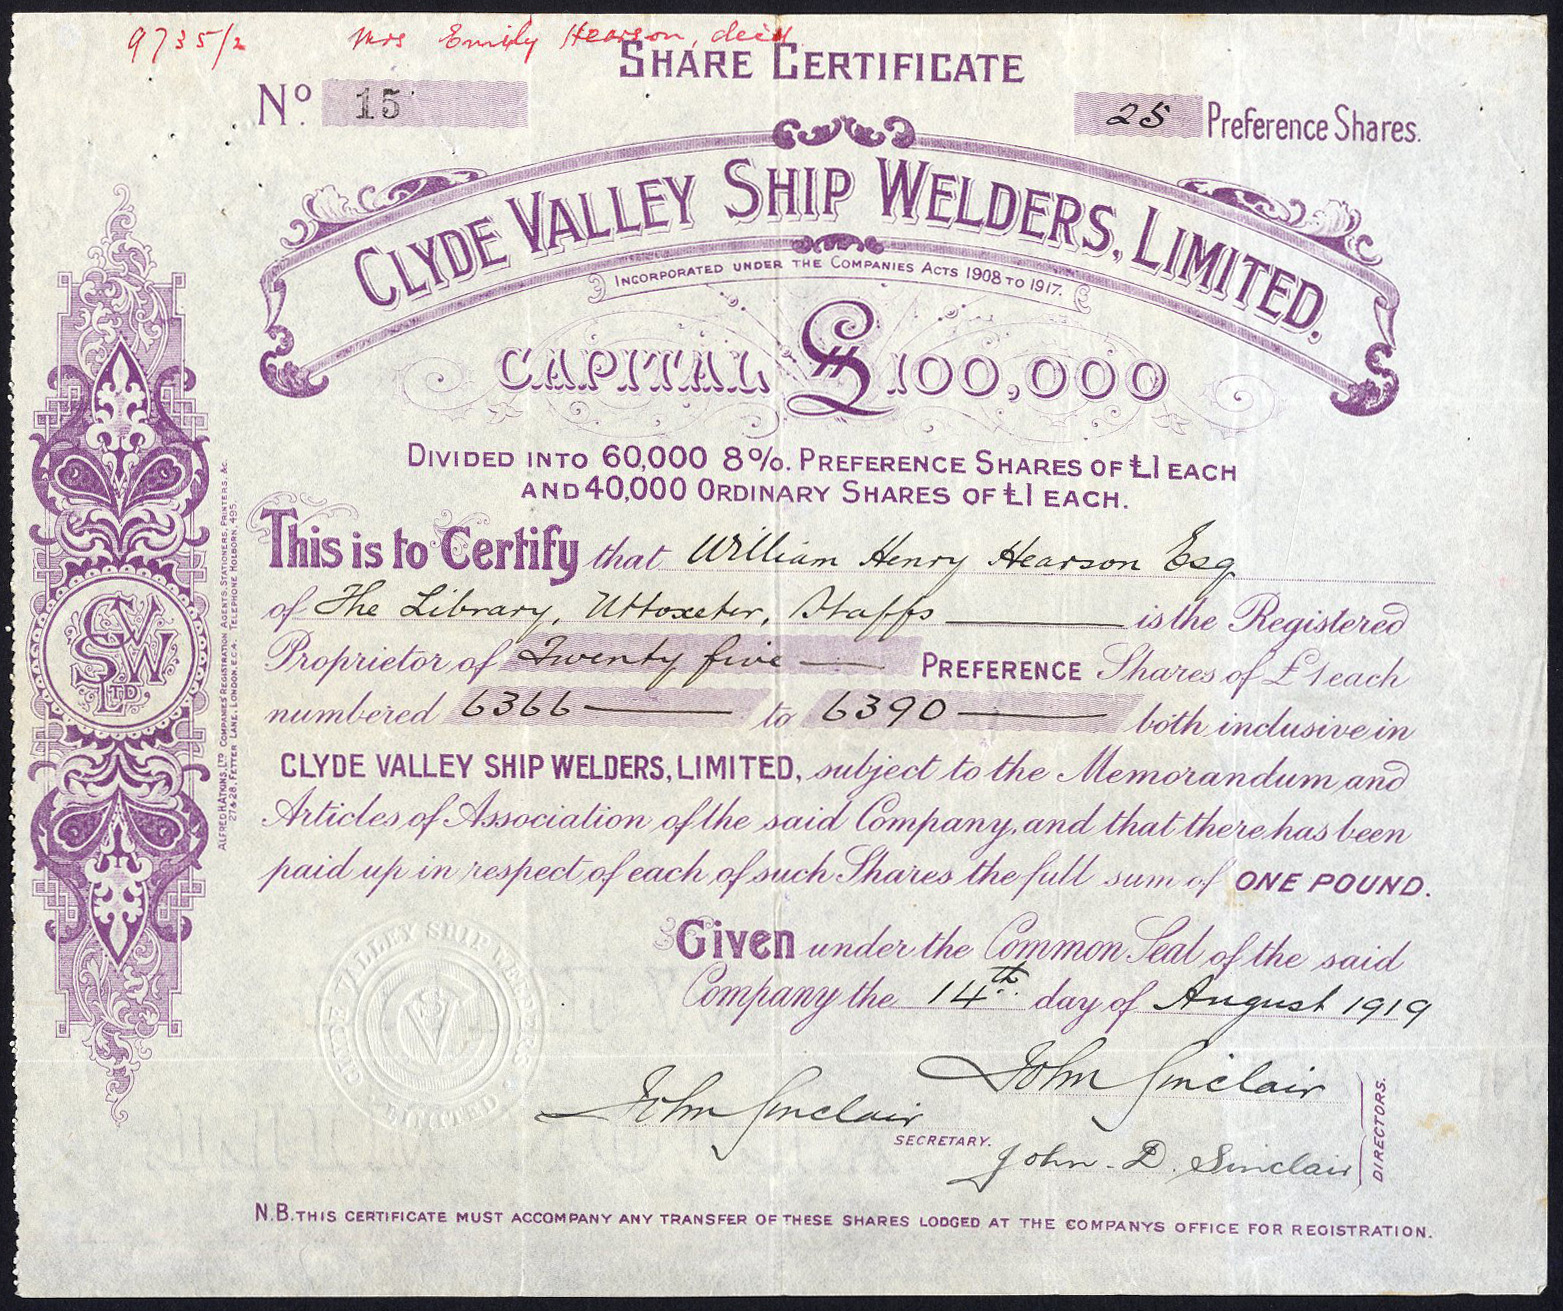 9735/2 Mrs Emily Hearson, decd
SHARE CERTIFICATE
No. 15
25 Preference Shares.
CLYDE VALLEY SHIP WELDERS, LIMITED.
INCORPORATED UNDER THE COMPANIES ACTS 1908 TO 1917.
CAPITAL £100,000
DIVIDED INTO 60,000 8%. PREFERENCE SHARES OF £1 EACH
AND 40,000 ORDINARY SHARES OF £1 EACH.
This is to Certify that William Henry Hearson Esq
of The Library, Uttoxeter, Staffs is the Registered
Proprietor of Twenty five PREFERENCE Shares of £1 each
numbered 6366 to 6390 both inclusive in
CLYDE VALLEY SHIP WELDERS, LIMITED, subject to the Memorandum and
Articles of Association of the said Company, and that there has been
paid up in respect of each of such Shares the full sum of ONE POUND.
Given under the Common Seal of the said
Company the 14th day of August 1919
John Sinclair
John Sinclair
SECRETARY.
John. D. Sinclair
DIRECTORS.
N.B. THIS CERTIFICATE MUST ACCOMPANY ANY TRANSFER OF THESE SHARES LODGED AT THE COMPANYS OFFICE FOR REGISTRATION.
CVSW LTD.
ALFRED H. ATKINS, LTD. COMPANIES' REGISTRATION AGENTS, STATIONERS, PRINTERS, &c.
27 & 28, FETTER LANE, LONDON, E.C.4. TELEPHONE HOLBORN, 495.
CLYDE VALLEY SHIP WELDERS LIMITED